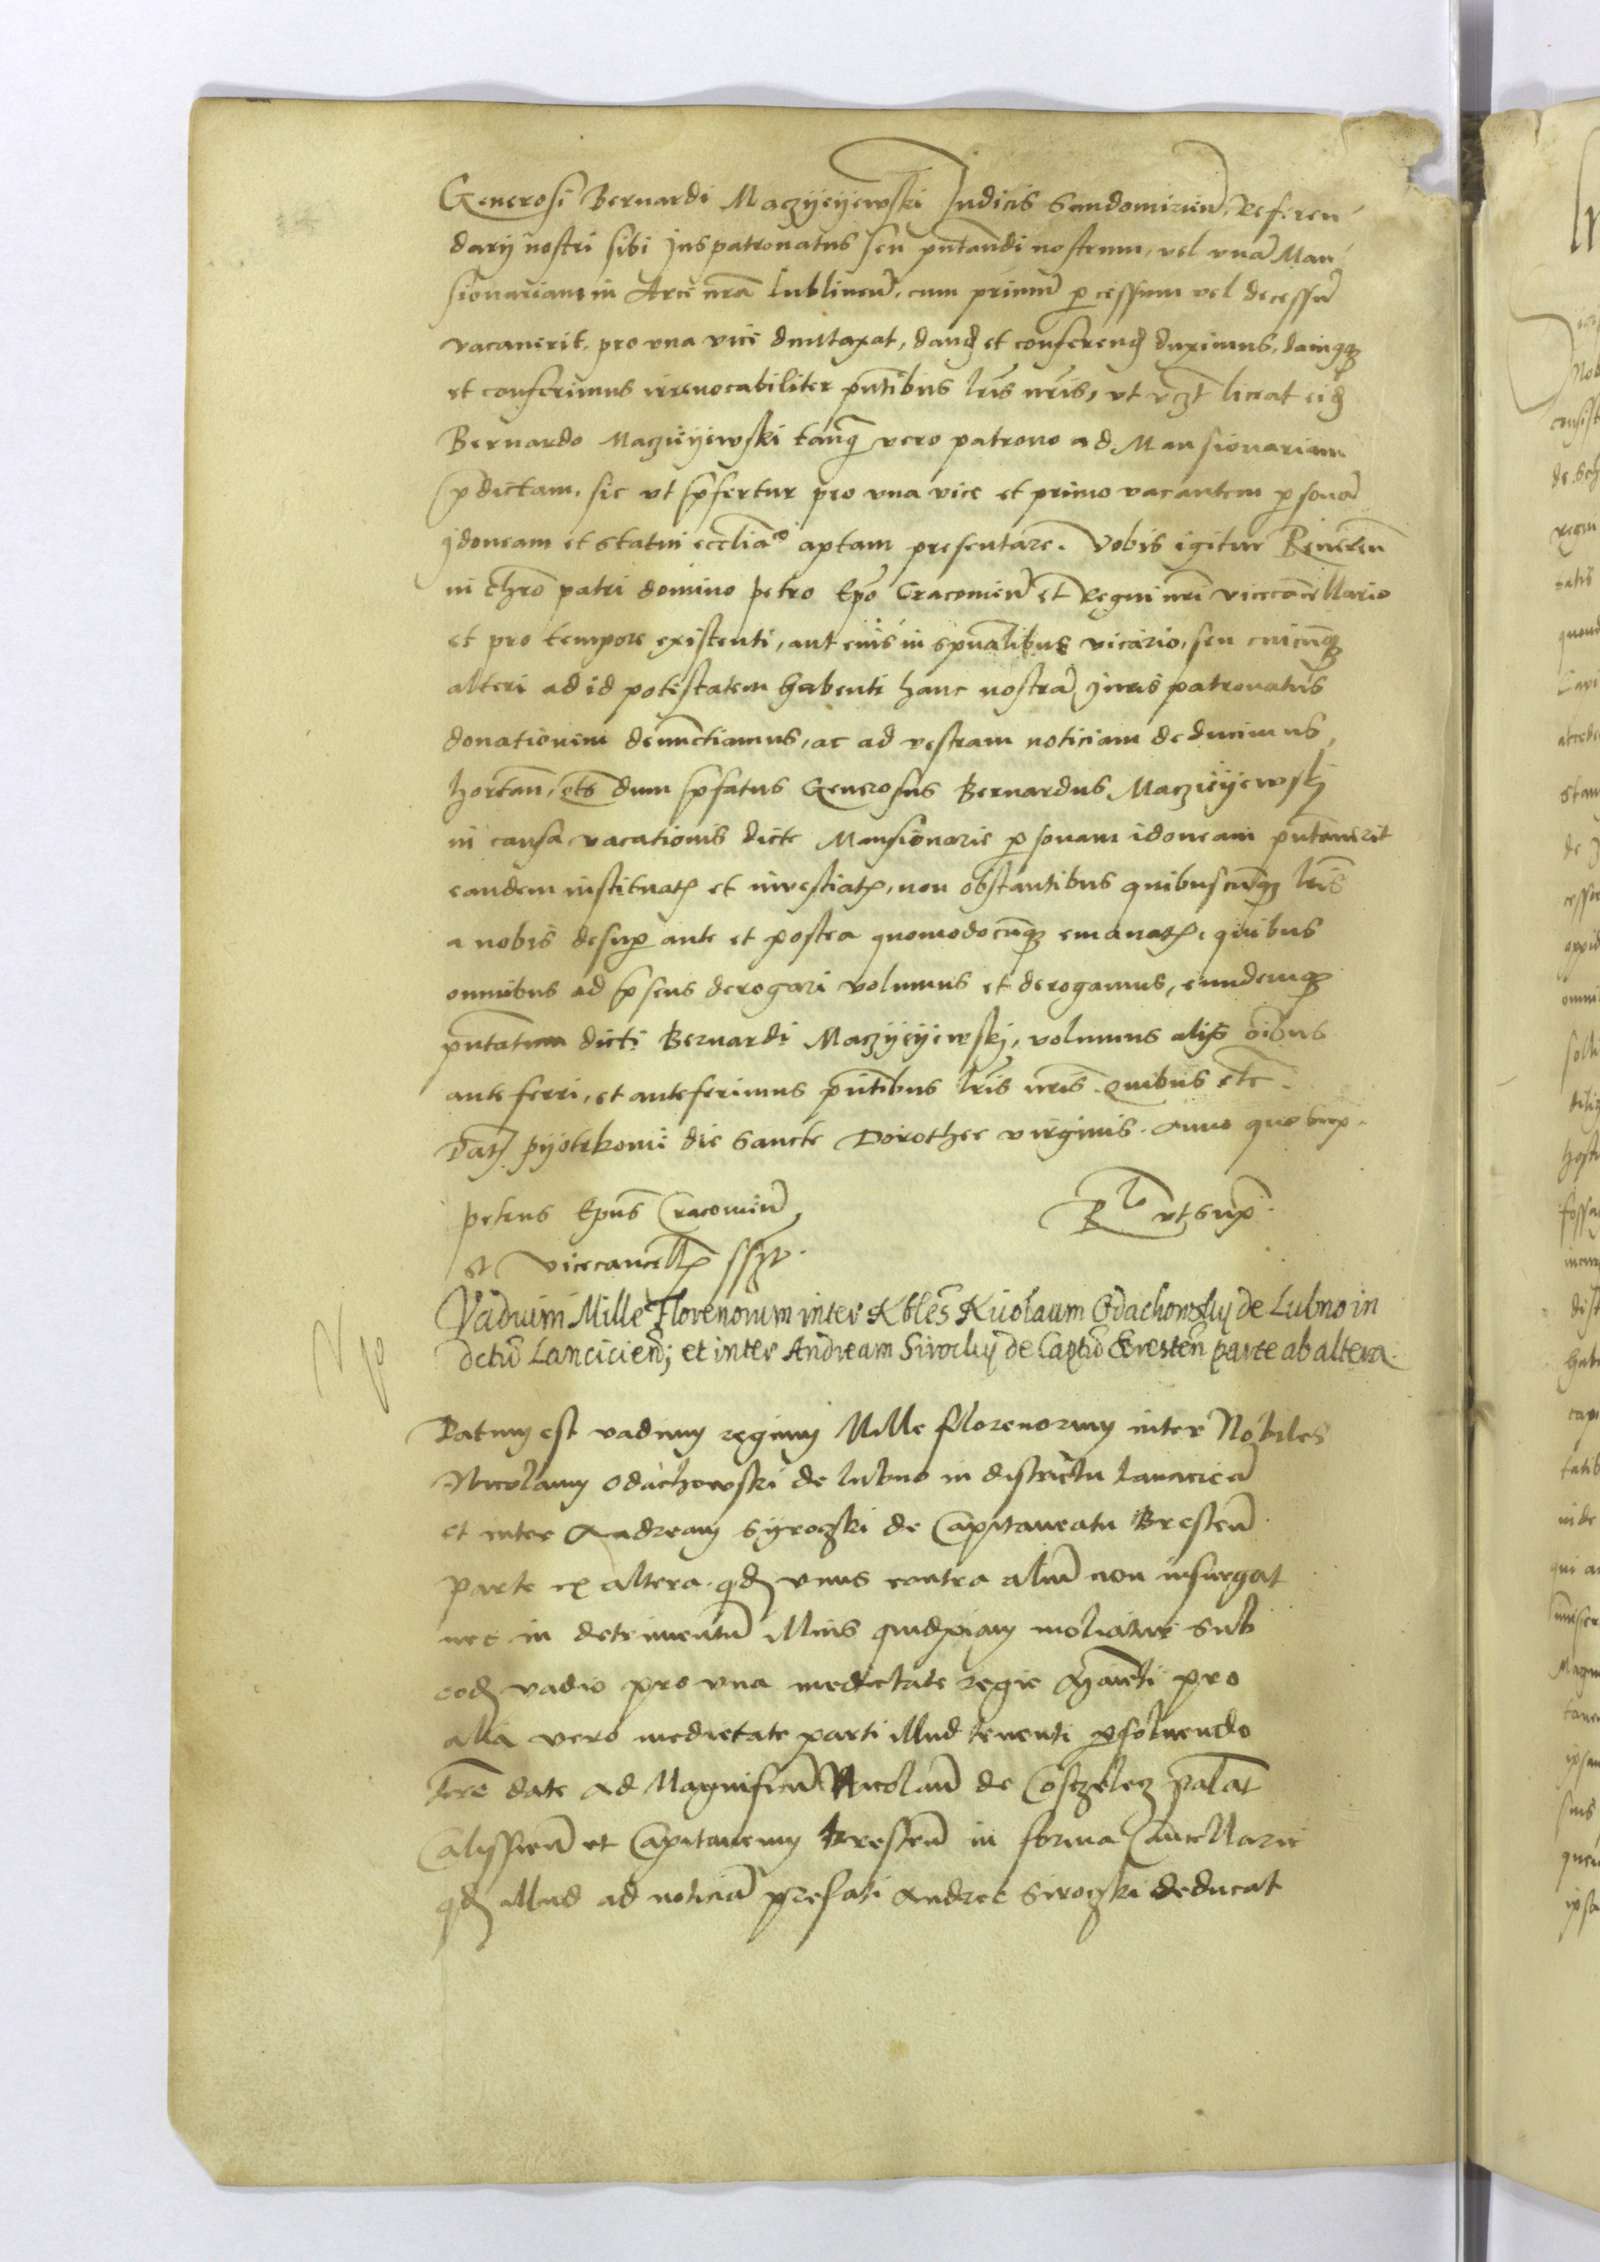 Generosi Bernardi Maczyeyewski Iudicis Sandomirien̄, Referen
darij nostri sibi Juspatronatus seu pn̄tandi nostrum, vel vnā Man
sionariam in Arce nrā Lublinen̄, cum primū p cessum vel decessū
vacauerit, pro vna vice duntaxat, dand et conferend duximus, damusq
et conferimus irreuocabiliter pn̄tibus lr̄is nr̄is, vt vczt liceat eid
Bernardo Maczieyewski tanq vero patrono ad Mansionariam
p dictam, sic vt p̄fertur pro vna vice et primo vacantem p sonā
ydoneam et statui eccliāo aptam presentare. Vobis igitur Reueren̄
in chr̄o patri domino Petro Ep̄o Cracouien̄ et Regni nr̄i vicecācellario
et pro tempore existenti, aut eius in spūalibus vicario, seu cuicūq
alteri ad id potestatem habenti hanc nostrā Juris patronatus
donationem denunctiamus, ac ad vestram noticiam deducimus,
hortan̄, vts dum p̄fatus Generosus Bernardus Maczieyewskj
in causa vacationis dicte Mansionarie p sonam idoneam pn̄tauerit
eandem instituat et inuestiat, non obstantibus quibuscūq lr̄is
a nobis desup ante et postea quomodocūq emanat, quibus
omnibus ad p̄sens derogari volumus et derogamus, eundemq
pn̄tatum dicti Bernardi Maczyeyewskj, volumus alijs oībus
anteferri, et anteferimus pn̄tibus lr̄is nr̄is. Quibus etc.
Dat Pyotrkouie die Sancte Dorothee virginis. Anno quo sup.
Petrus Ep̄us Cracouien̄
Rto vt sup
et Vicecancell sszt.
Vadium Mille Florenorum inter Nbles Nicolaum Odachowsky de Lubno in
dctū Lancicien; et inter Andream Siroczky de Captū Bresten̄ parte ab altera.
Datum est vadium regium Mille florenorum inter Nobiles
Nicolaum Odachowski de Lubno in districtu Lancicien̄
et inter Andream Syroczki de Capitaneatu Bresten̄
parte ex altera. qd vnus contra aliū non insurgat
nec in detrimentū illius quidpiam moliatur sub
eod vadio pro vna medietate regie Maiesti pro
alia vero medietate parti illud tenenti psoluendo
lr̄e date ad Magnificū Nicolaū de Coszczelecz palat
Calissien̄ et Capitaneum Bresten̄ in forma Cancellarie
qd illud ad noticiā prefati Andree Siroczki deducat